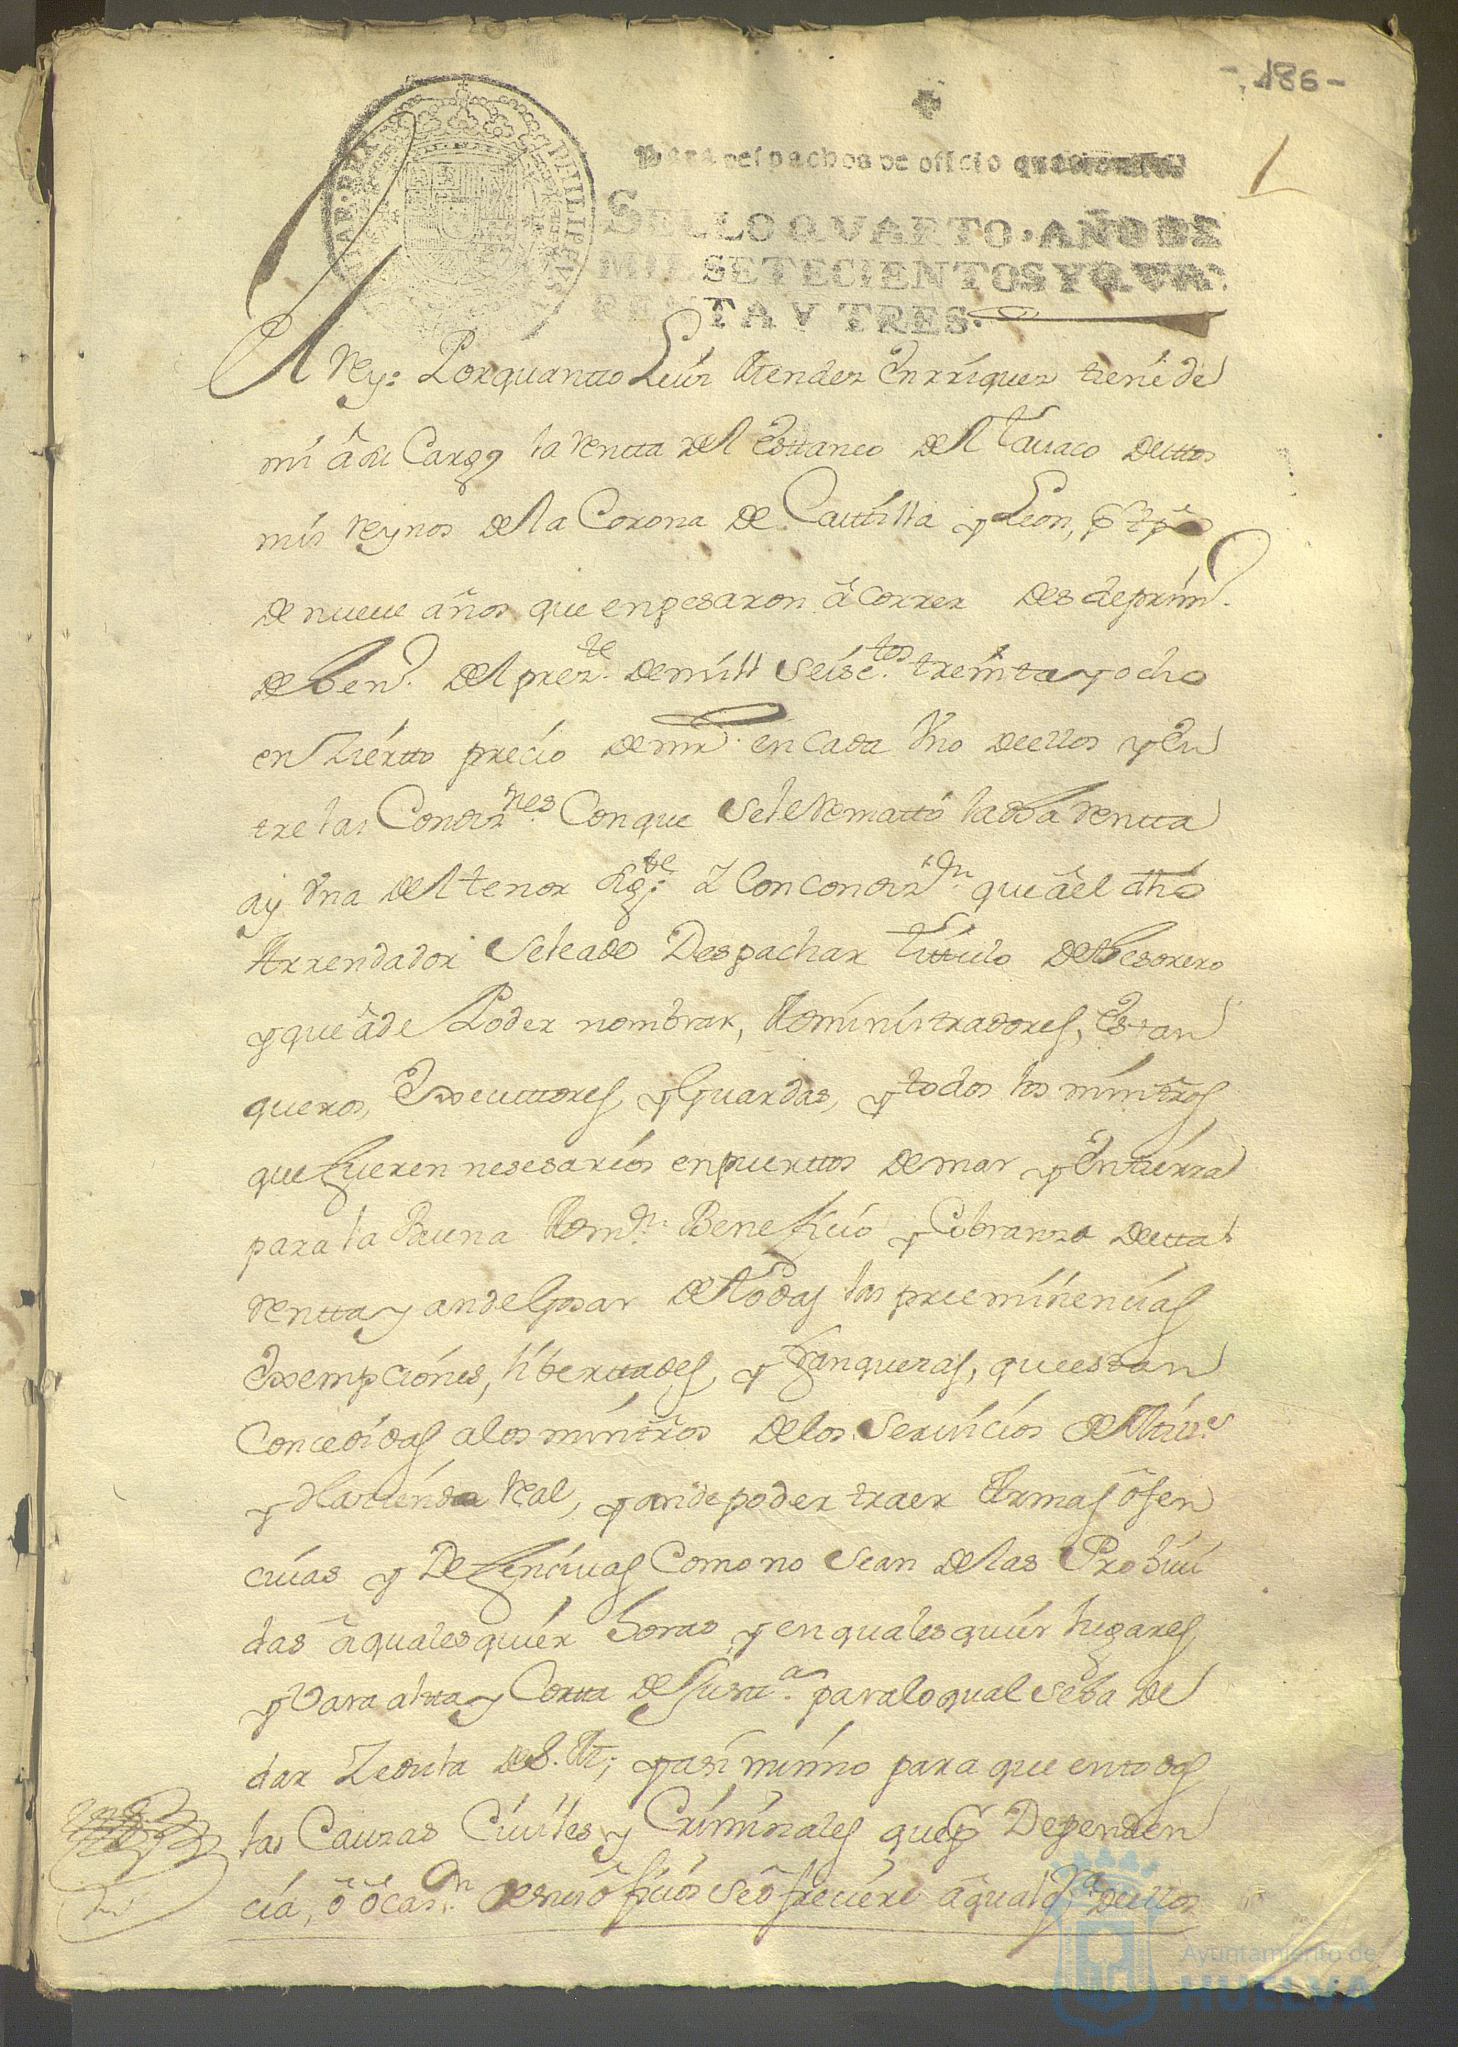 - 186 -
1
Para despachos de oficio quatro mrs
SELLO QVARTO, AÑO DE
MIL SETECIENTOS Y QVA-
RENTA Y TRES.
PHILIPPVS
El Rey: Porquantto Luis Mendez Enrriquez tiene de
mi â su Cargo la rentta del Esttanco del Tauaco desttos
mis reynos de la Corona de Casttilla y Leon, pr tpo
de nueve años que enpesaron â correr desde prim.
de hen.º del prez.te de mill seisc.tos treinta y ocho
en zierto precio de mrs. en cada Vno de ellos y En
tre las Condiz.nes Con que se le remattô la dha rentta
ay Vna del tenor sig.te Y Con condiz.on que âel dho
Arrendador se le a de Despachar tittulo de thesorero
y que â de Poder nombrar, Administradores, Estan
queros, Executtores, y Guardas, y todos los mintros
que fueren nesesarios en puerttos de mar y En tierra
para la Buena Adm.on Beneficio y Cobranza de estta
rentta y an de Gosar de todas las preeminencias
Exempciones, liberttades, y franquezas, que estan
Concedidas a los mintros de los servicios de Mill.es
y Hacienda Real, y an de poder traer Armas ôfen
civas y Defencivas Como no sean de las Prohivi
das â quales quier horas, y en quales quier lugares,
y Vara altta y Cortta de Justi.a para lo qual se ha de
dar Zedula de S. M.; y asi mismo para que en todas
las Causas Civiles y Criminales que pr Dependen
cia, ô ôcas.on de sus ôficios se ôfreciere â qualq.a de ellos
Ayuntamiento de
HUELVA